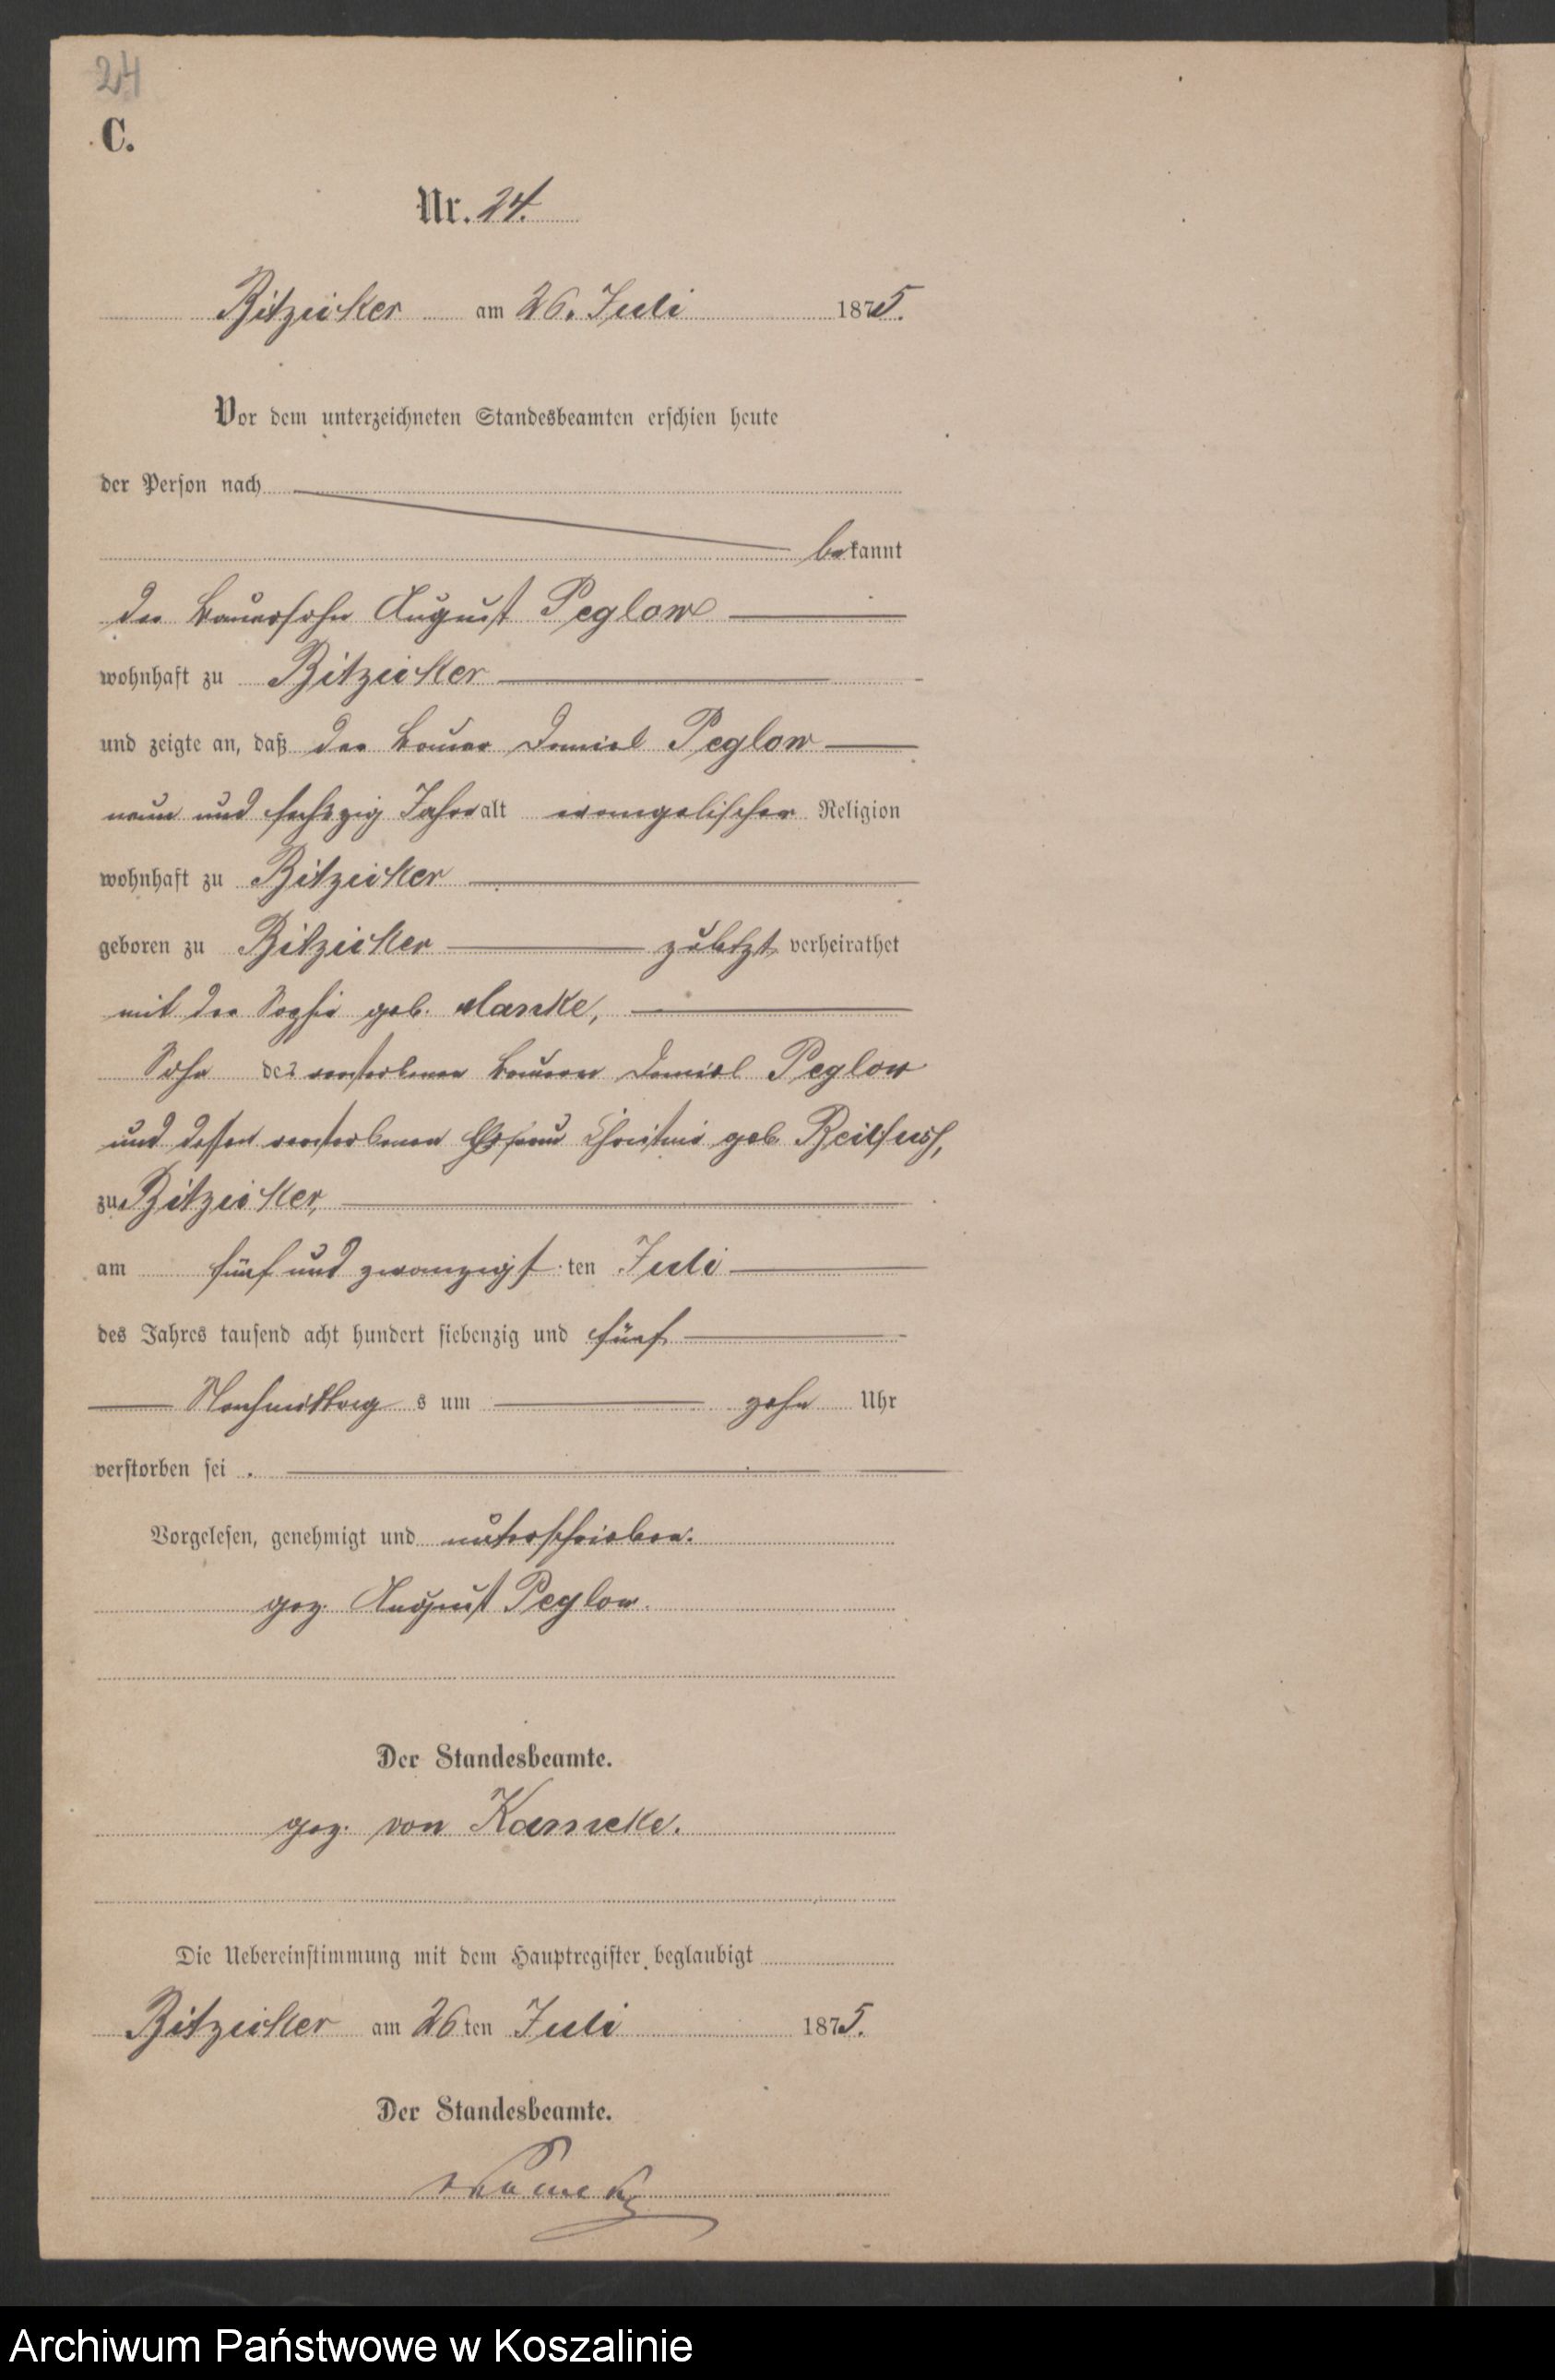 24
C.
Nr. 24.
Bitzicker am 26. Juli 1875.
Vor dem unterzeichneten Standesbeamten erschien heute
der Person nach
bekannt
der Bauersohn August Peglow
wohnhaft zu Bitzicker
und zeigte an, daß der Bauer Daniel Peglow
neun und sechszig Jahre alt evangelischer Religion
wohnhaft zu Bitzicker
geboren zu Bitzicker zuletzt verheirathet
mit der Sophie geb. Manke,
Sohn des verstorbenen Bauern Daniel Peglow
und dessen verstorbenen Ehefrau Christine geb.
zu Bitzicker,
am fünf und zwanzigsten Juli
des Jahres tausend acht hundert siebenzig und fünf
Nachmittags um zehn Uhr
verstorben sei.
Vorgelesen, genehmigt und unterschrieben.
gez. August Peglow.
Der Standesbeamte.
gez. von Kamecke.
Die Uebereinstimmung mit dem Hauptregister beglaubigt
Bitzicker am 26ten Juli 1875.
Der Standesbeamte.
vKameke
Archiwum Państwowe w Koszalinie